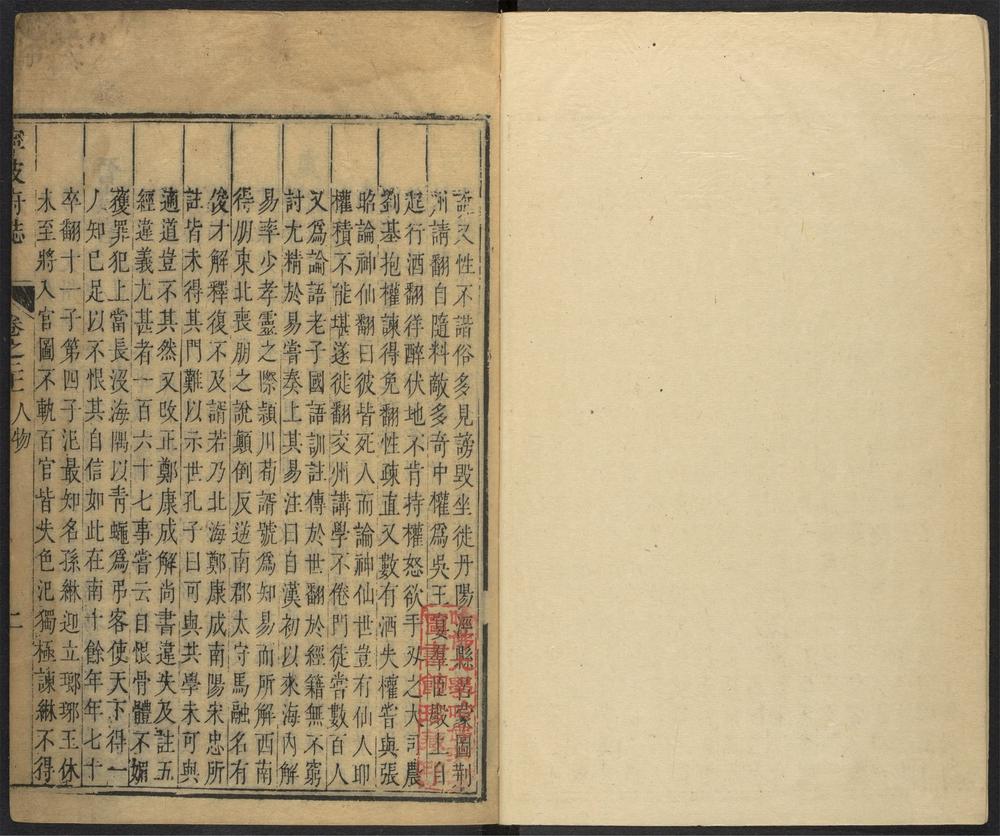 諍又性不諧俗多見謗毀坐徙丹陽涇縣呂蒙圖荆
州請翻自隨料敵多奇中權爲吳王宴羣臣殿上自
起行酒翻徉醉伏地不肯持權怒欲手刃之大司農
劉基抱權諫得免翻性疎直又數有酒失權嘗與張
昭論神仙翻曰彼皆死人而論神仙世豈有仙人耶
權積不能堪遂徙翻交州講學不倦門徒嘗數百人
又爲論語老子國語訓註傳於世翻於經籍無不窮
討尤精於易嘗奏上其易注曰自漢初以來海內解
易率少孝靈之際頴川荀諝號爲知易而所解西南
得朋東北喪朋之說顚倒反逆南郡太守馬融名有
俊才解釋復不及諝若乃北海鄭康成南陽宋忠所
註皆未得其門難以示世孔子曰可與共學未可與
適道豈不其然又改正鄭康成解尚書違失及註五
經違義尤甚者一百六十七事嘗云自恨骨體不媚
獲罪犯上當長沒海隅以靑蠅爲弔客使天下得一
人知已足以不恨其自信如此在南十餘年年七十
卒翻十一子第四子汜最知名孫綝迎立瑯琊王休
未至將入宫圖不軌百官皆失色汜獨極諫綝不得
寧波府誌 卷之三 人物 二